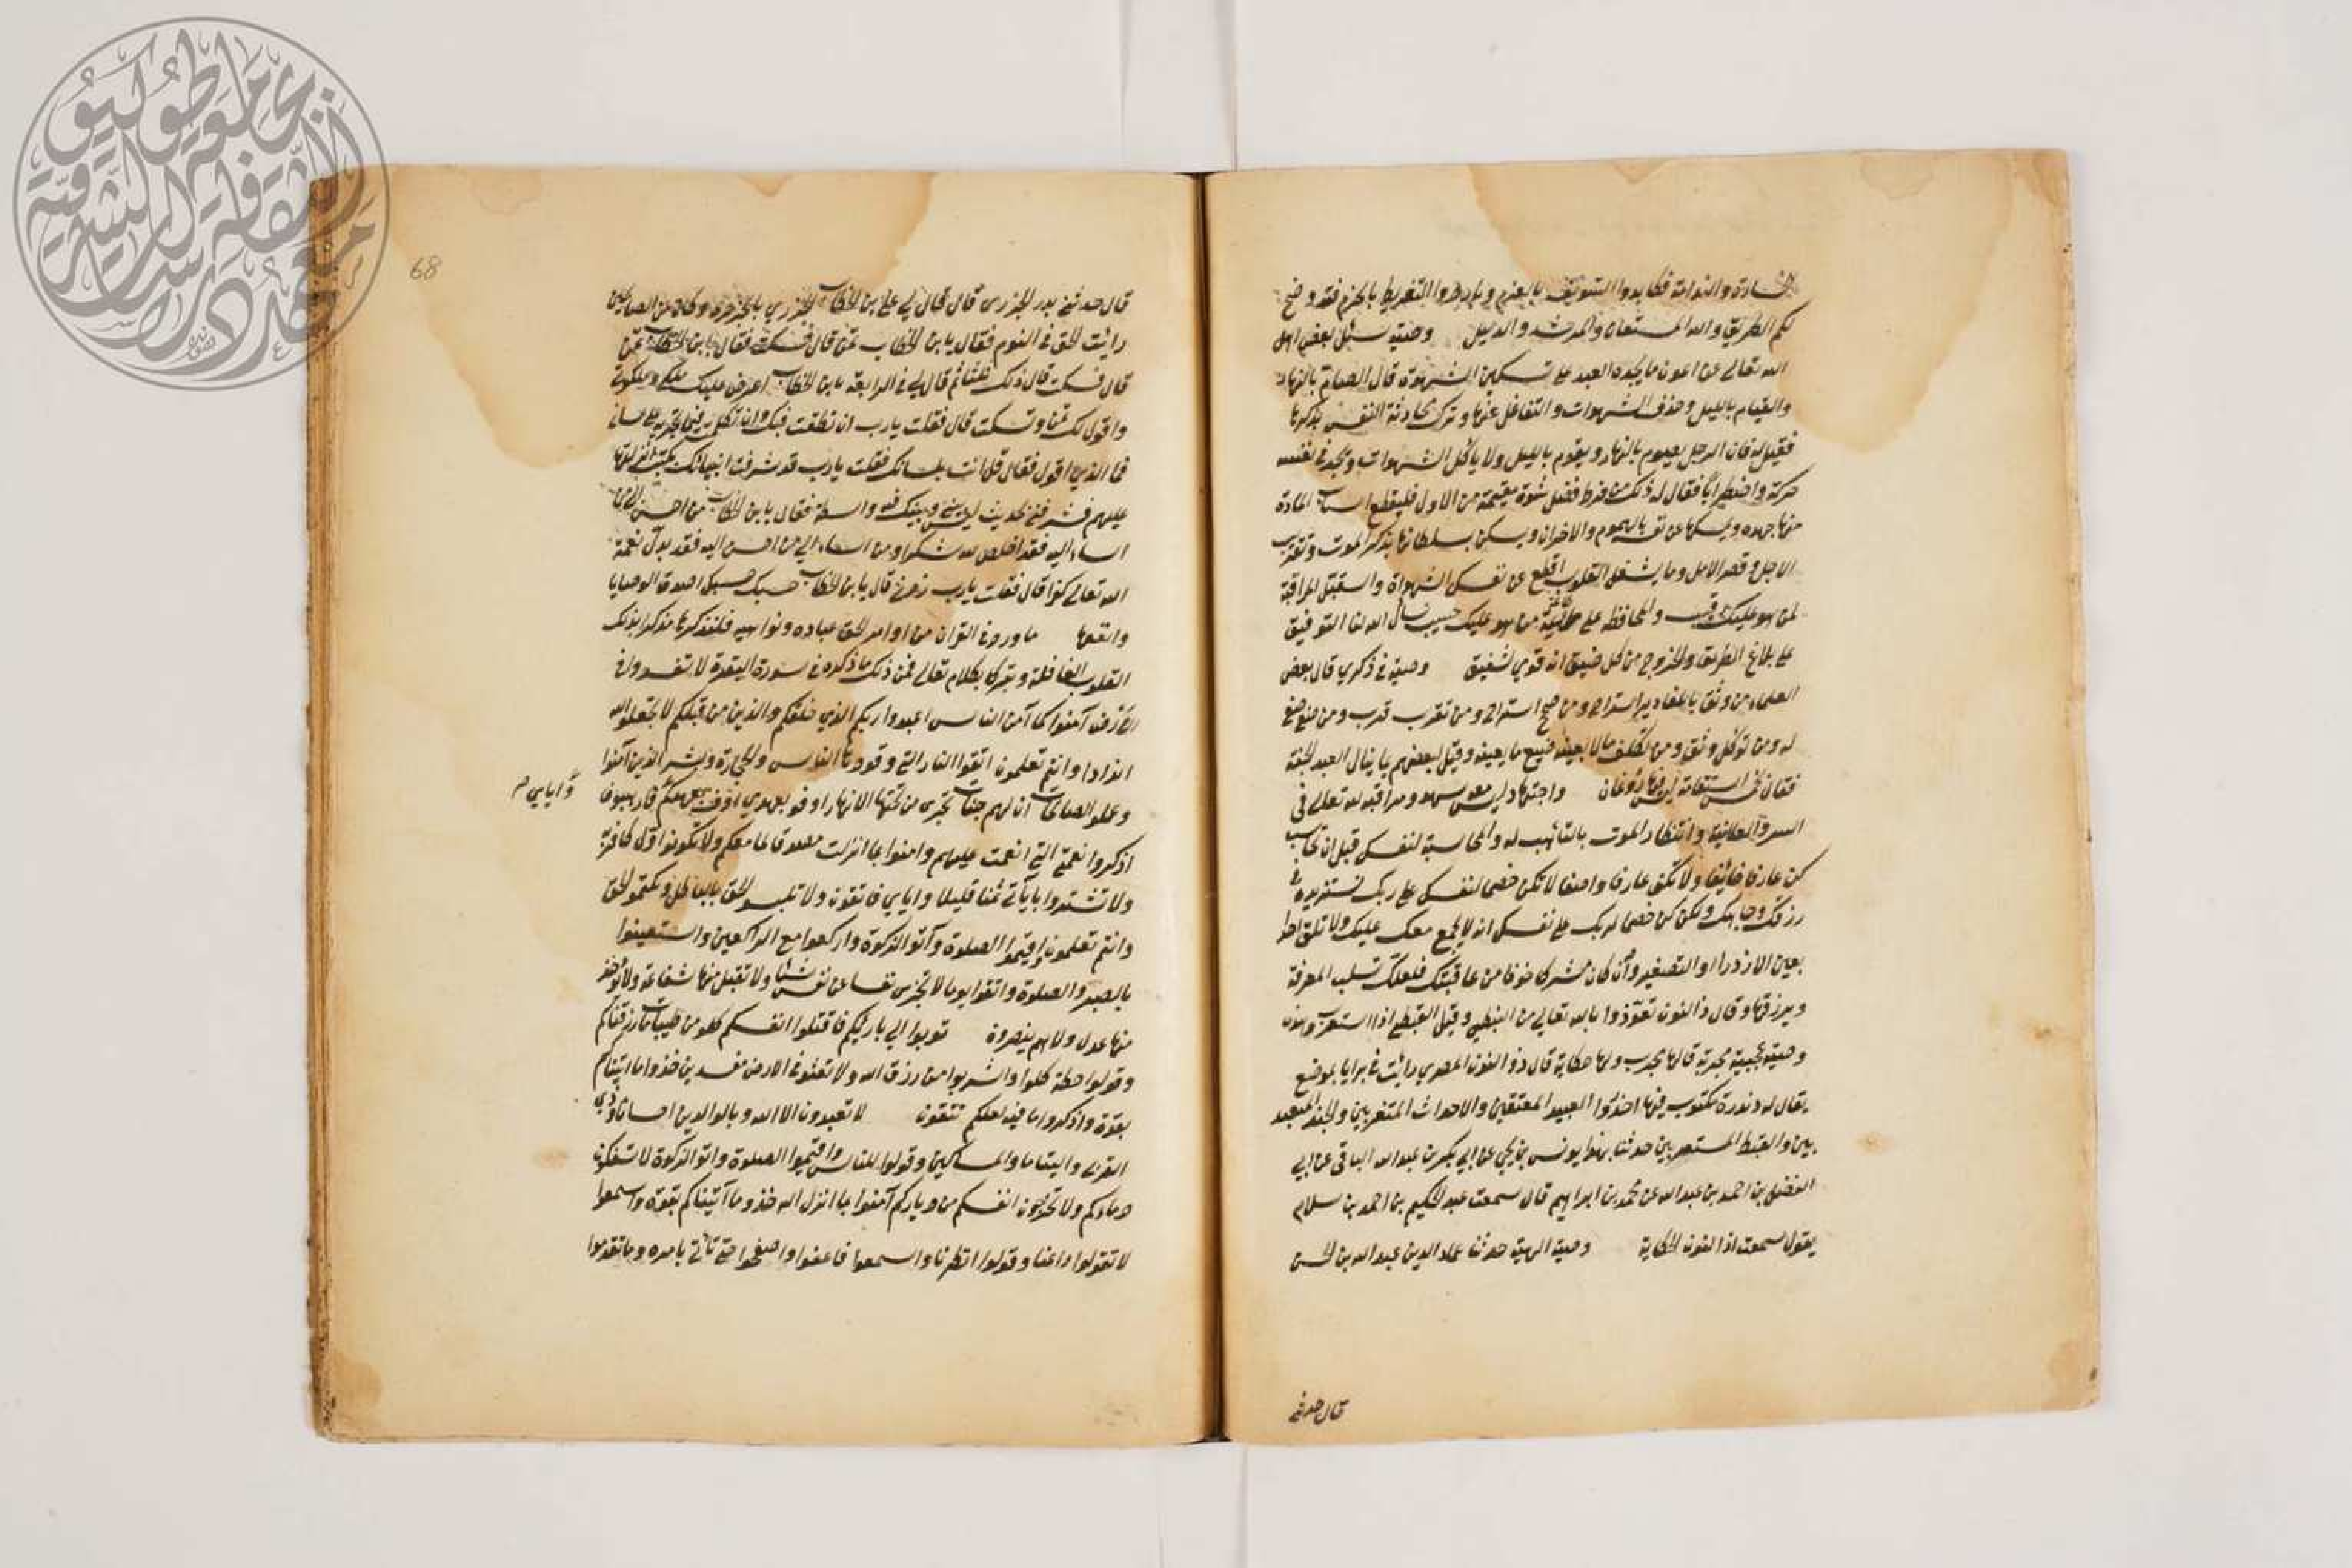 والندامة فكابدوا التسويف بالعزم وبادروا التفريط بالحزم فقد وضح
لكم الطريق والله المستعان والمرشد والدليل وصية سئل بعض اهل
الله تعالى عن اعون ما يجده العبد على تسكين الشهوة قال الصيام بالنهار
والقيام بالليل وحذف الشهوات والتغافل عنها وترك محادثة النفس بذكرها
فقيل له فان الرجل يصوم بالنهار ويقوم بالليل ولا ياكل الشهوات ويجد في نفسه
حركة واضطرابا فقال له ذلك من فرط فضل شهوة مقيمة من الاول فليقطع اسباب المادة
منها جهده ويمسكها عن نفسه بالهموم والاحزان ويسكن سلطانها بذكر الموت وتقريب
الاجل وقصر الامل وما يشغل القلوب اقطع عن نفسك الشهواة واستقبل المراقبة
لمن هو عليك رقيب والمحافظة على طاعة من هو عليك حسيب نسال الله لنا التوفيق
على بلاغ الطريق والخروج من كل ضيق انه قوي شفيق وصية في ذكري قال بعض
العلماء من وثق بالمقادير استراح ومن صحح استراح ومن تقرب قرب ومن صفى صفي
له ومن توكل وثق ومن تكلف مالا يعنيه ضيع ما يعنيه وقيل لبعضهم بما ينال العبد الجنة
فقال بخمس استقامة ليس فيها روغان واجتهاد ليس معه سهو ومراقبة لله تعالى في
السر والعلانية وانتظار الموت بالتأهب له والمحاسبة لنفسك قبل ان تحاسب
كن عارفا خائفا ولا تكن عارفا واصفا لا تكن خصما لنفسك على ربك تستزيده في
رزقك وجاهك ولكن كن خصما لربك على نفسك انه لا يجمع معك عليك ولا تلق احدا
بعين الازدراء والتصغير وان كان مشركا خوفا من عاقبتك فلعلك تسلب المعرفة
ويرزقها وقال ذا النون تعوذوا بالله تعالى من النبطي وقيل القبطي اذا استعرب
وصية عجيبة مجربة قالها مجرب ولها حكاية قال ذو النون المصري رايت في برايا بموضع
يقال له دندرة مكتوب فيها احذروا العبيد المعتقين والاحداث المتغربين والجند المتعبد
ين والقبط المستعربين حدثنا بهذا يونس بن يحيى عن ابي بكر بن عبد الله الباقي عن ابي
الفضل بن احمد بن عبد الله عن محمد بن ابراهيم قال سمعت عبد الحكيم بن احمد بن سلام
يقول سمعت ذا النون الحكاية وصية الهية حدثنا عماد الدين عبد الله بن الحسن
قال حدثني
68
قال حدثني بدر الجزري قال قال لي علي بن الخطاب الجزري بالجزيرة وكان من الصالحين
رايت الحق في النوم فقال يا بن الخطاب تمن قال فسكت فقال يا بن الخطاب تمن
قال فسكت قال ذلك ثلثا ثم قال لي في الرابعة يا بن الخطاب اعرض عليك ملكي وملكوتي
واقول لك تمن وتسكت قال فقلت يارب ان نطقت فبك وان تكلمت فبما تجريه على لساني
فما الذي اقول فقال قل انت بلسانك فقلت يارب قد شرفت انبياءك بكتب انزلتها
عليهم فشرفني بحديث ليس بيني وبينك فيه واسطة فقال يا بن الخطاب من احسن الى من
اساء اليه فقد اخلص لله شكرا ومن اساء الى من احسن اليه فقد بدل نعمة
الله تعالى كفرا قال فقلت يارب زدني قال يا بن الخطاب حسبك حسبك اصدق الوصايا
وانفعها ما ورد في القرآن من اوامر الحق عباده ونواهيه فلنذكرها مذكرا بذلك
القلوب الغافلة وتبركا بكلام تعالى فمن ذلك ما ذكره في سورة البقرة لا تفسدوا في
الارض آمنوا كما آمن الناس اعبدوا ربكم الذي خلقكم والذين من قبلكم لا تجعلوا لله
اندادا وانتم تعلمون اتقوا النار التي وقودها الناس والحجارة وبشر الذين آمنوا
وعملوا الصالحات ان لهم جنات تجري من تحتها الانهار اوفوا بعهدي اوف بعهدكم فارهبون
وإياي
اذكروا نعمتي التي انعمت عليهم وآمنوا بما انزلت مصدقا لما معكم ولا تكونوا اول كافر به
ولا تشتروا بآياتي ثمنا قليلا واياي فاتقون ولا تلبسوا الحق بالباطل وتكتموا الحق
وانتم تعلمون واقيموا الصلوة وآتوا الزكوة واركعوا مع الراكعين واستعينوا
بالصبر والصلوة واتقوا يوما لا تجزى نفس عن نفس شيئا ولا تقبل منها شفاعة ولا يؤخذ
منها عدل ولا هم ينصرون توبوا الى بارئكم فاقتلوا انفسكم كلوا من طيبات ما رزقناكم
وقولوا حطة كلوا واشربوا من رزق الله ولا تعثوا في الارض مفسدين خذوا ما آتيناكم
بقوة واذكروا ما فيه لعلكم تتقون لا تعبدون الا الله وبالوالدين احسانا وذي
القربى واليتاما والمساكين وقولوا للناس واقيموا الصلوة واتوا الزكوة لا تسفكون
دماءكم ولا تخرجون انفسكم من دياركم آمنوا بما انزل الله خذوا ما آتيناكم بقوة واسمعوا
لا تقولوا راعنا وقولوا انظرنا واسمعوا فاعفوا واصفحوا حتى تأتي بامره وما تقدموا